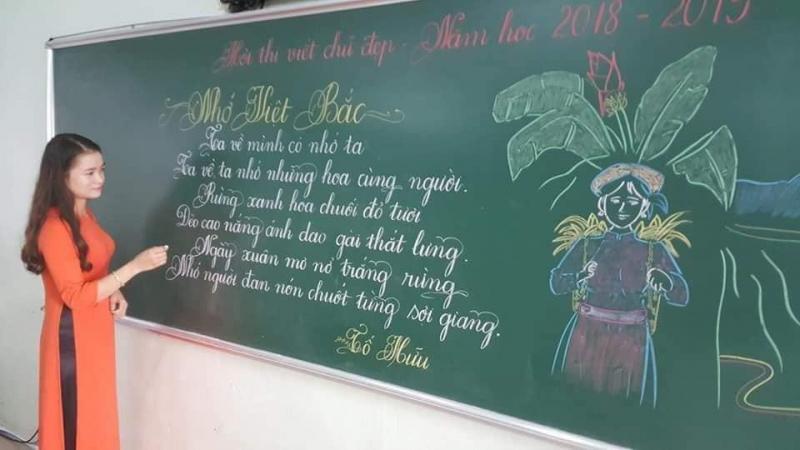 Hội thi viết chữ đẹp - Năm học 2018 - 2019
Nhớ Việt Bắc
Ta về mình có nhớ ta
Ta về ta nhớ những hoa cùng người.
Rừng xanh hoa chuối đỏ tươi
Đèo cao nắng ánh dao gài thắt lưng.
Ngày xuân mơ nở trắng rừng
Nhớ người đan nón chuốt từng sợi giang.
Tố Hữu